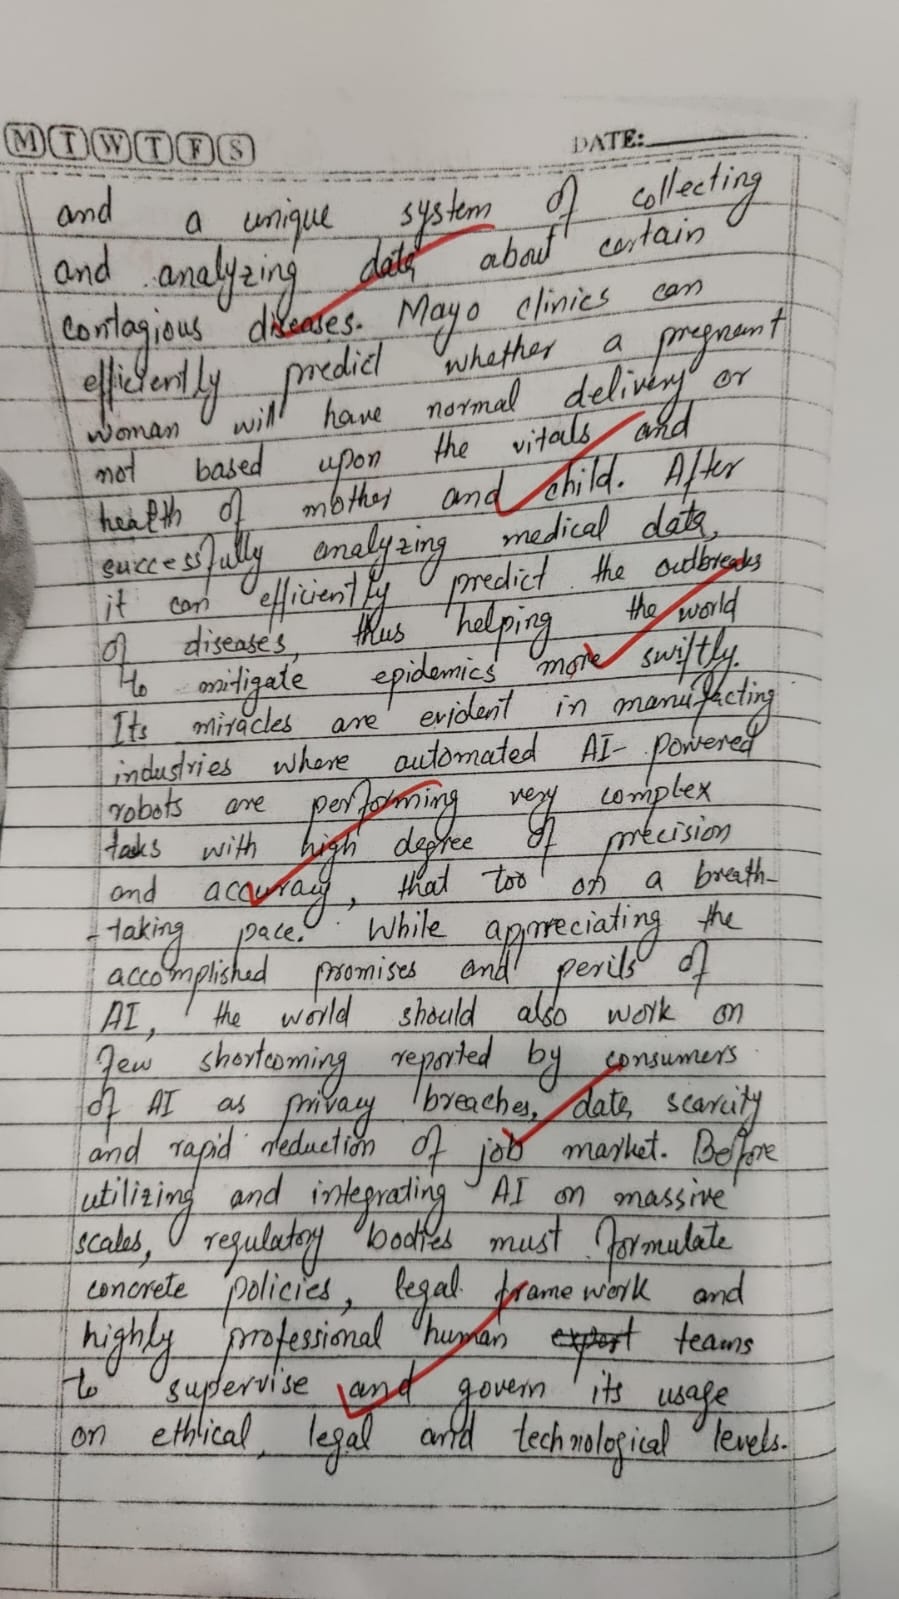 M T W T F S DATE:
and a unique system of collecting
and analyzing data about certain
contagious diseases. Mayo clinics can
efficiently predict whether a pregnant
woman will have normal delivery or
not based upon the vitals and
health of mother and child. After
successfully analyzing medical data,
it can efficiently predict the outbreaks
of diseases, thus helping the world
to mitigate epidemics more swiftly.
Its miracles are evident in manufacting
industries where automated AI-powered
robots are performing very complex
tasks with high degree of precision
and accuracy, that too on a breath-
-taking pace. While appreciating the
accomplished promises and perils of
AI, the world should also work on
few shortcoming reported by consumers
of AI as privacy breaches, data scarcity
and rapid reduction of job market. Before
utilizing and integrating AI on massive
scales, regulatory bodies must formulate
concrete policies, legal framework and
highly professional human expert teams
to supervise and govern its usage
on ethical, legal and technological levels.